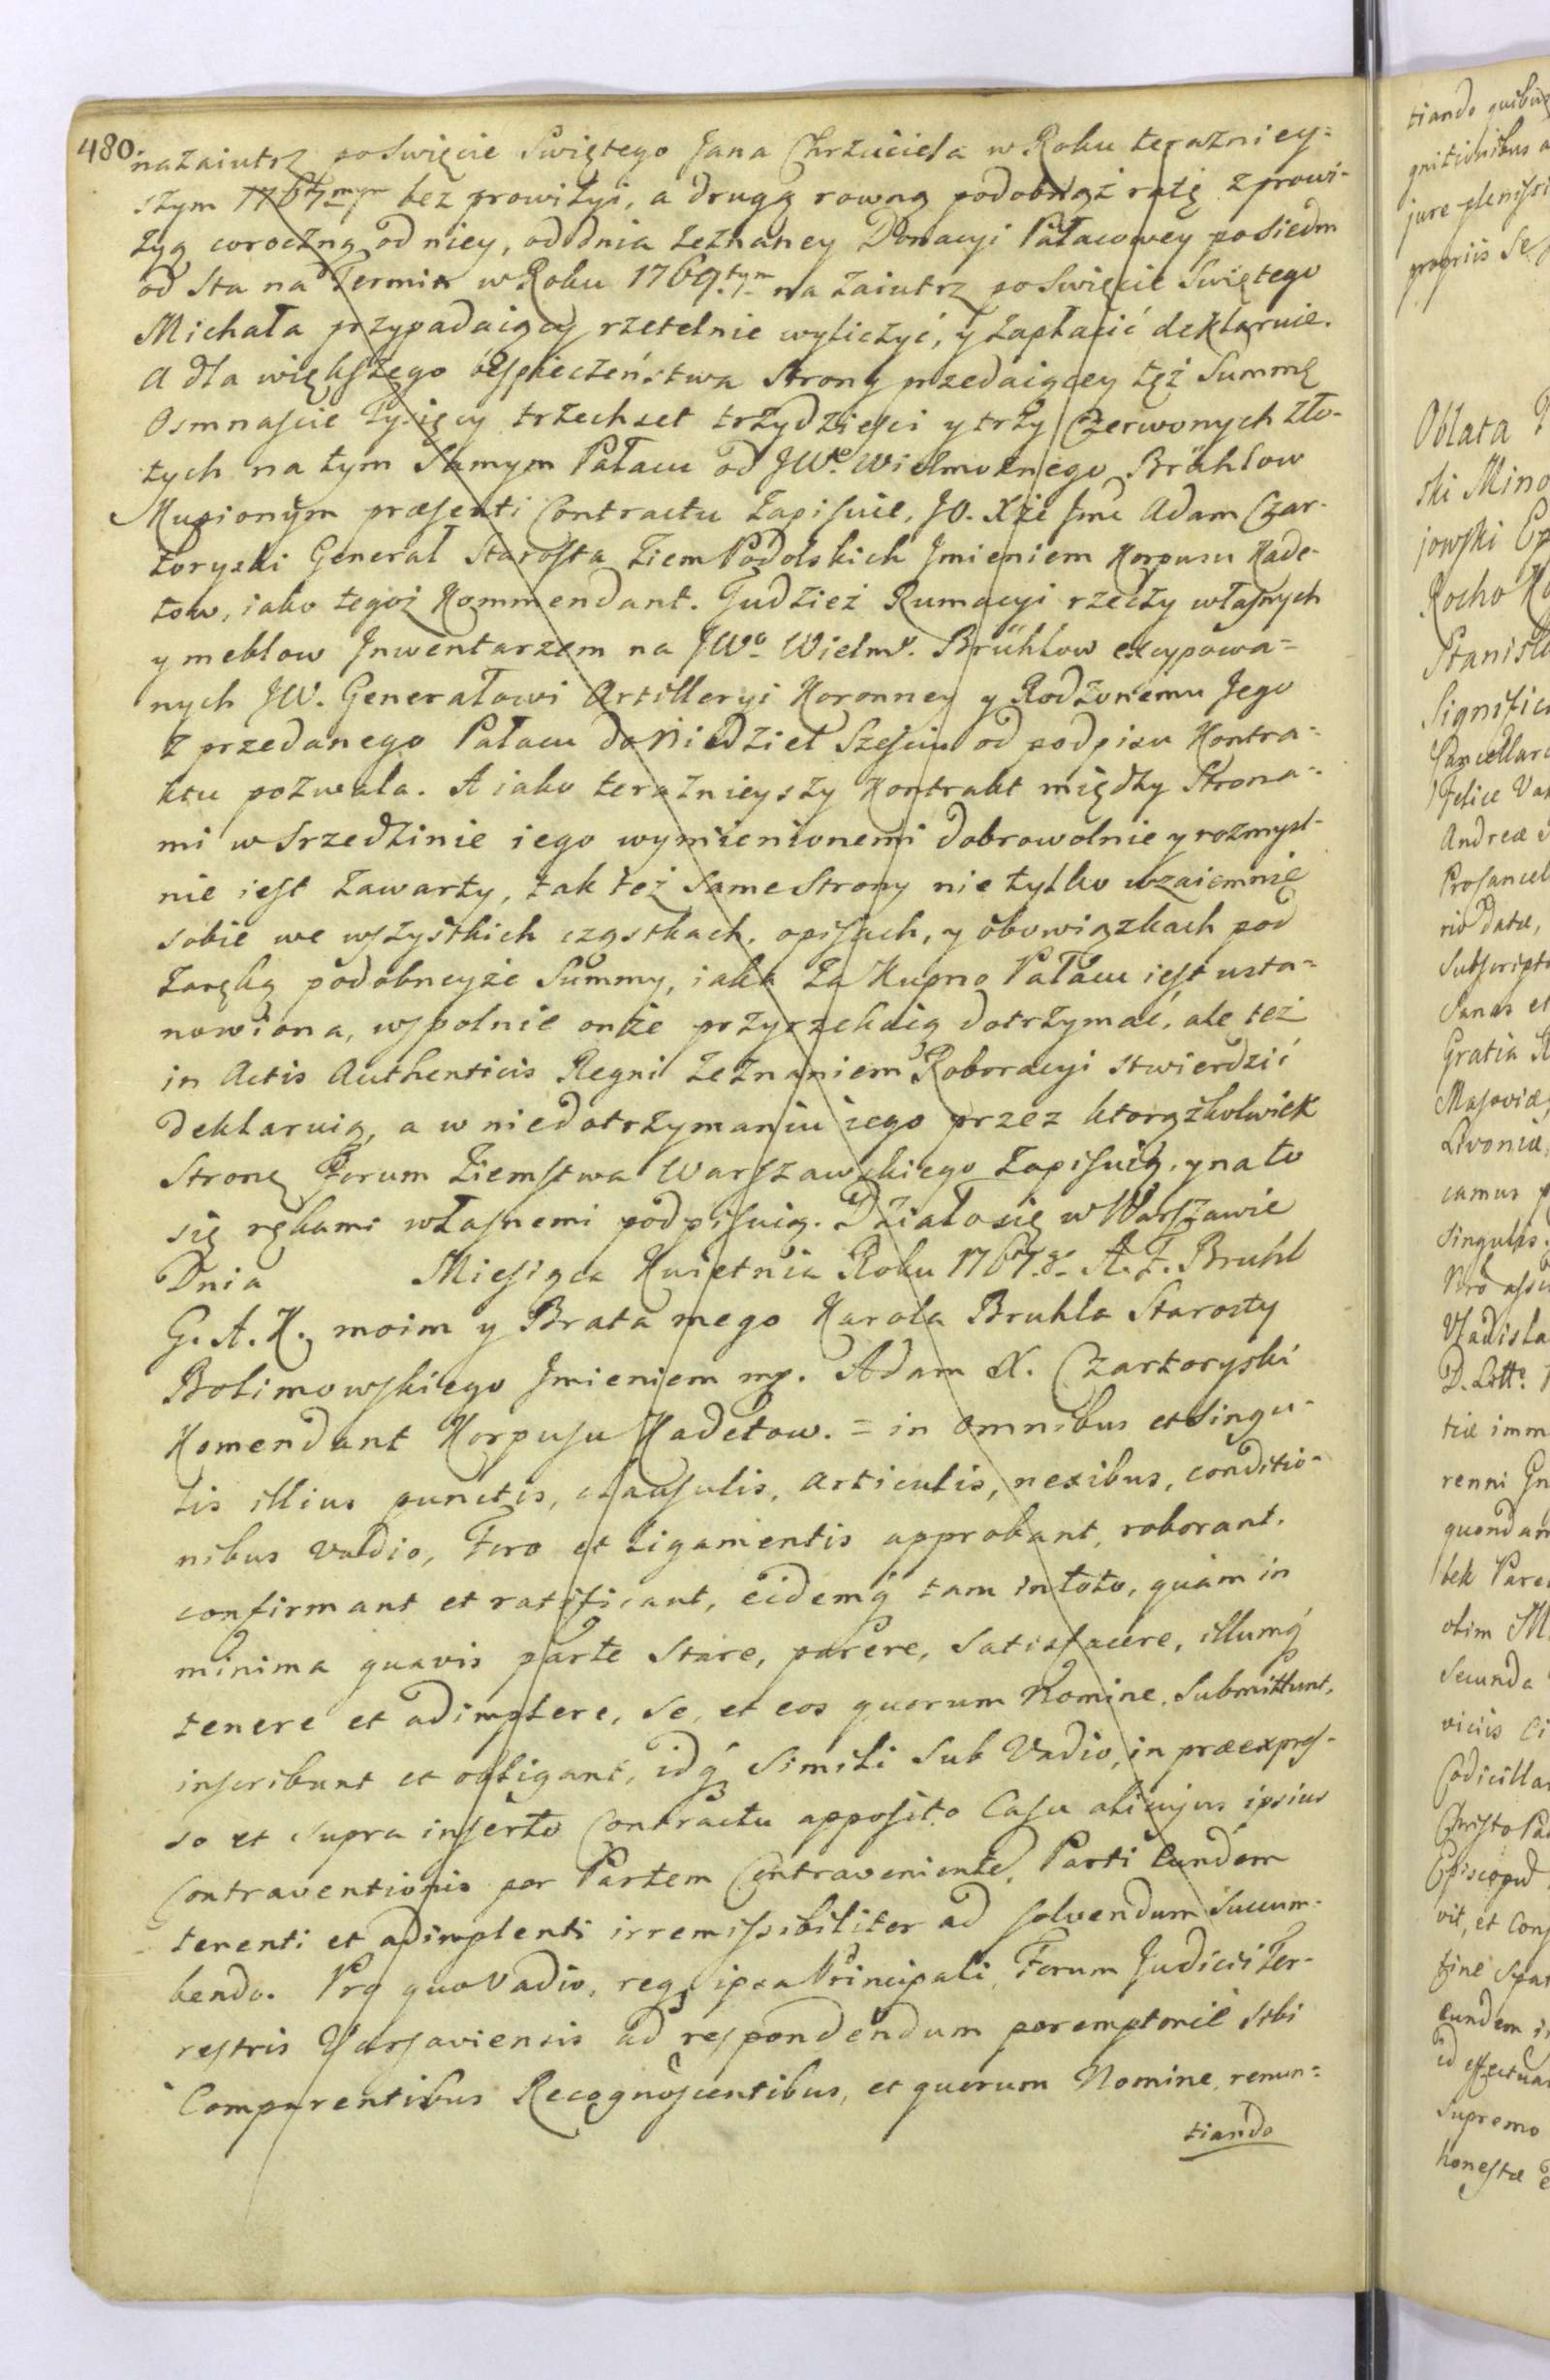 480.
nazaiutrz po Swięcie Swiętego Jana Chrzciciela w Roku terazniey=
szym 1767mym bez prowizyi, a drugą rowną podobnąż ratę z prowi-
zyą coroczną od niey, od dnia zeznaney Donacyi Pałacowey po siedm
od sta na Termin w Roku 1769.tym na zaiutrz po Swięcie Swiętego
Michała przypadaiący rzetelnie wyliczyć, y zapłacić deklaruie.
A dla większego bespieczeństwa Strony przedaiącey tęż Summę
Osmnaście Tysięcy trzechset trzydzieści y trzy Czerwonych zło-
tych na tym Samym Pałacu od JWo Wielmoznego Brühlow
Kupionym præsenti Contractu zapisuie, JO. Xże Jmć Adam Czar-
toryski Generał Starosta Ziem Podolskich Jmieniem Korpusu Kade-
tow, iako tegoż Kommendant. Tudzież Rumacyi rzeczy własnych
y meblow Jnwentarzem na JWo Wielmo. Brühlow excypowa=
nych JW. Generałowi Artilleryi Koronney y Rodzonemu Jego
z przedanego Pałacu do Niedziel Sześciu od podpisu Kontra=
ktu pozwala. A iako terażnieyszy Kontrakt między Strona=
mi w srzedzinie iego wymienionemi dobrowolnie y rozmysl-
nie iest zawarty, tak też same Strony nie tylko wzaiemnie
sobie we wszystkich cząstkach, opisach, y obowiązkach pod
zaręką podobneyże Summy, iaka za Kupno Pałacu iest usta=
nowiona, wspolnie onże przyrzekaią dotrzymać, ale też
in Actis Authenticis Regni zeznaniem Roboracyi stwierdzić
deklaruią, a w niedotrzymaniu iego przez ktorążkolwiek
Stronę Forum Ziemstwa Warszawskiego zapisuią, y na to
się rękami własnemi podpisuią. Działo się w Warszawie
Dnia Miesiąca Kwietnia Roku 1767.go A. F. Bruhl
G. A. K. moim y Brata mego Karola Bruhla Starosty
Bolimowskiego Jmieniem mp. Adam X. Czartoryski
Komendant Korpusu Kadetow. = in omnibus et singu-
lis illius punctis, clausulis, articulis, nexibus, conditio-
nibus vadio, Foro et ligamentis approbant, roborant.
confirmant et ratificant, eidemq́ tam in toto, quàm in
minima quavis parte stare, parere, satisfacere, illumq́
tenere et adimplere, se, et eos quorum Nomine, submittunt,
inscribunt et obligant, idq́ simili sub Vadio, in præexpres-
so et supra inserto Contractu apposito Casu alicujus ipsius
Contraventionis per Partem Contravenientē, Parti Eundem
tenenti et adimplenti irremissibiliter ad solvendum succum-
bendo. Pro quo Vadio, reqз ipsa Principali, Forum Judicii Ter-
restris Varsaviensis ad respondendum peremptoriè sibi
Comparentibus Recognoscentibus, et quorum Nomine, renun=
tiando
tiando
jure plenissi
propriis Se
Oblata
ski Mino
jowski Ep
Rocho
Stanisl
Significa
Cancellar
Felice Va
Andreæ
Procancel
rio Datæ,
Subscript
Sanas et
Gratia
Masoviæ
Livoniæ,
camus
Singulis
Nro
Vladisla
D. Litt
tiæ imm
renni Gn
quondam
bek Pare
olim
Secunda
viciis Ci
Codicilla
Christo Pa
Episcopū
vit, et Con
fine
eundem
Supremo
honestæ